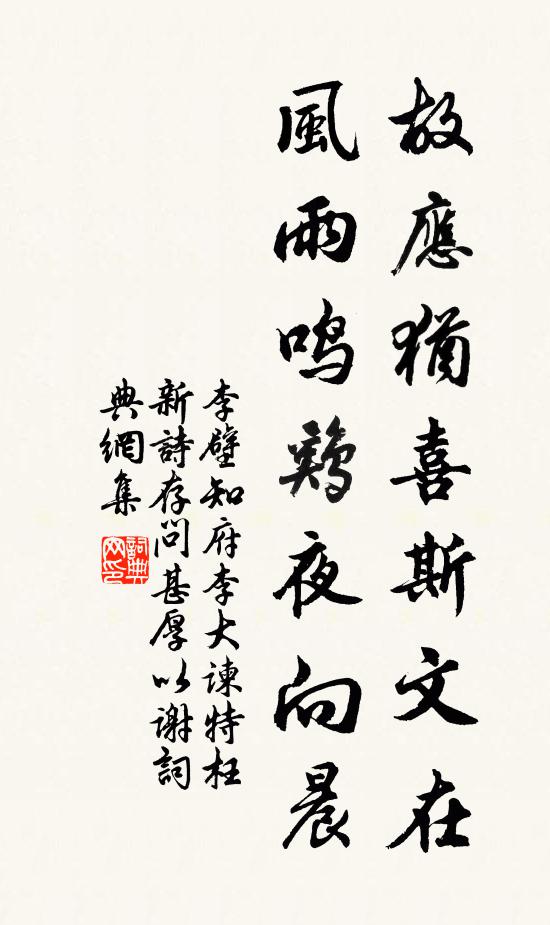 故應猶喜斯文在
風雨鳴鷄夜向晨
李壁知府李大諫特枉
新詩存問甚厚以謝詞
典網集
詞典
网印